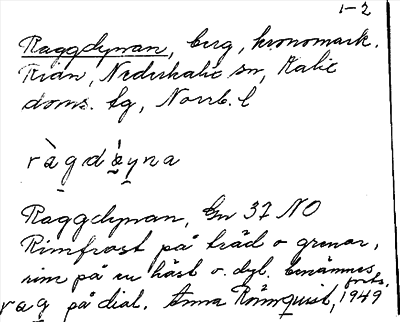 1-2
Raggdynan, berg, kronomark.
Nederkalix sn, Kalix
doms. tg, Norrb. l
ràgdỳna
Raggdynan, Gn 37 NO
Rimfrost på träd o grenar,
rim på en häst o. dyl. benämnes
forts.
rag på dial. Anna Rönnquist, 1949